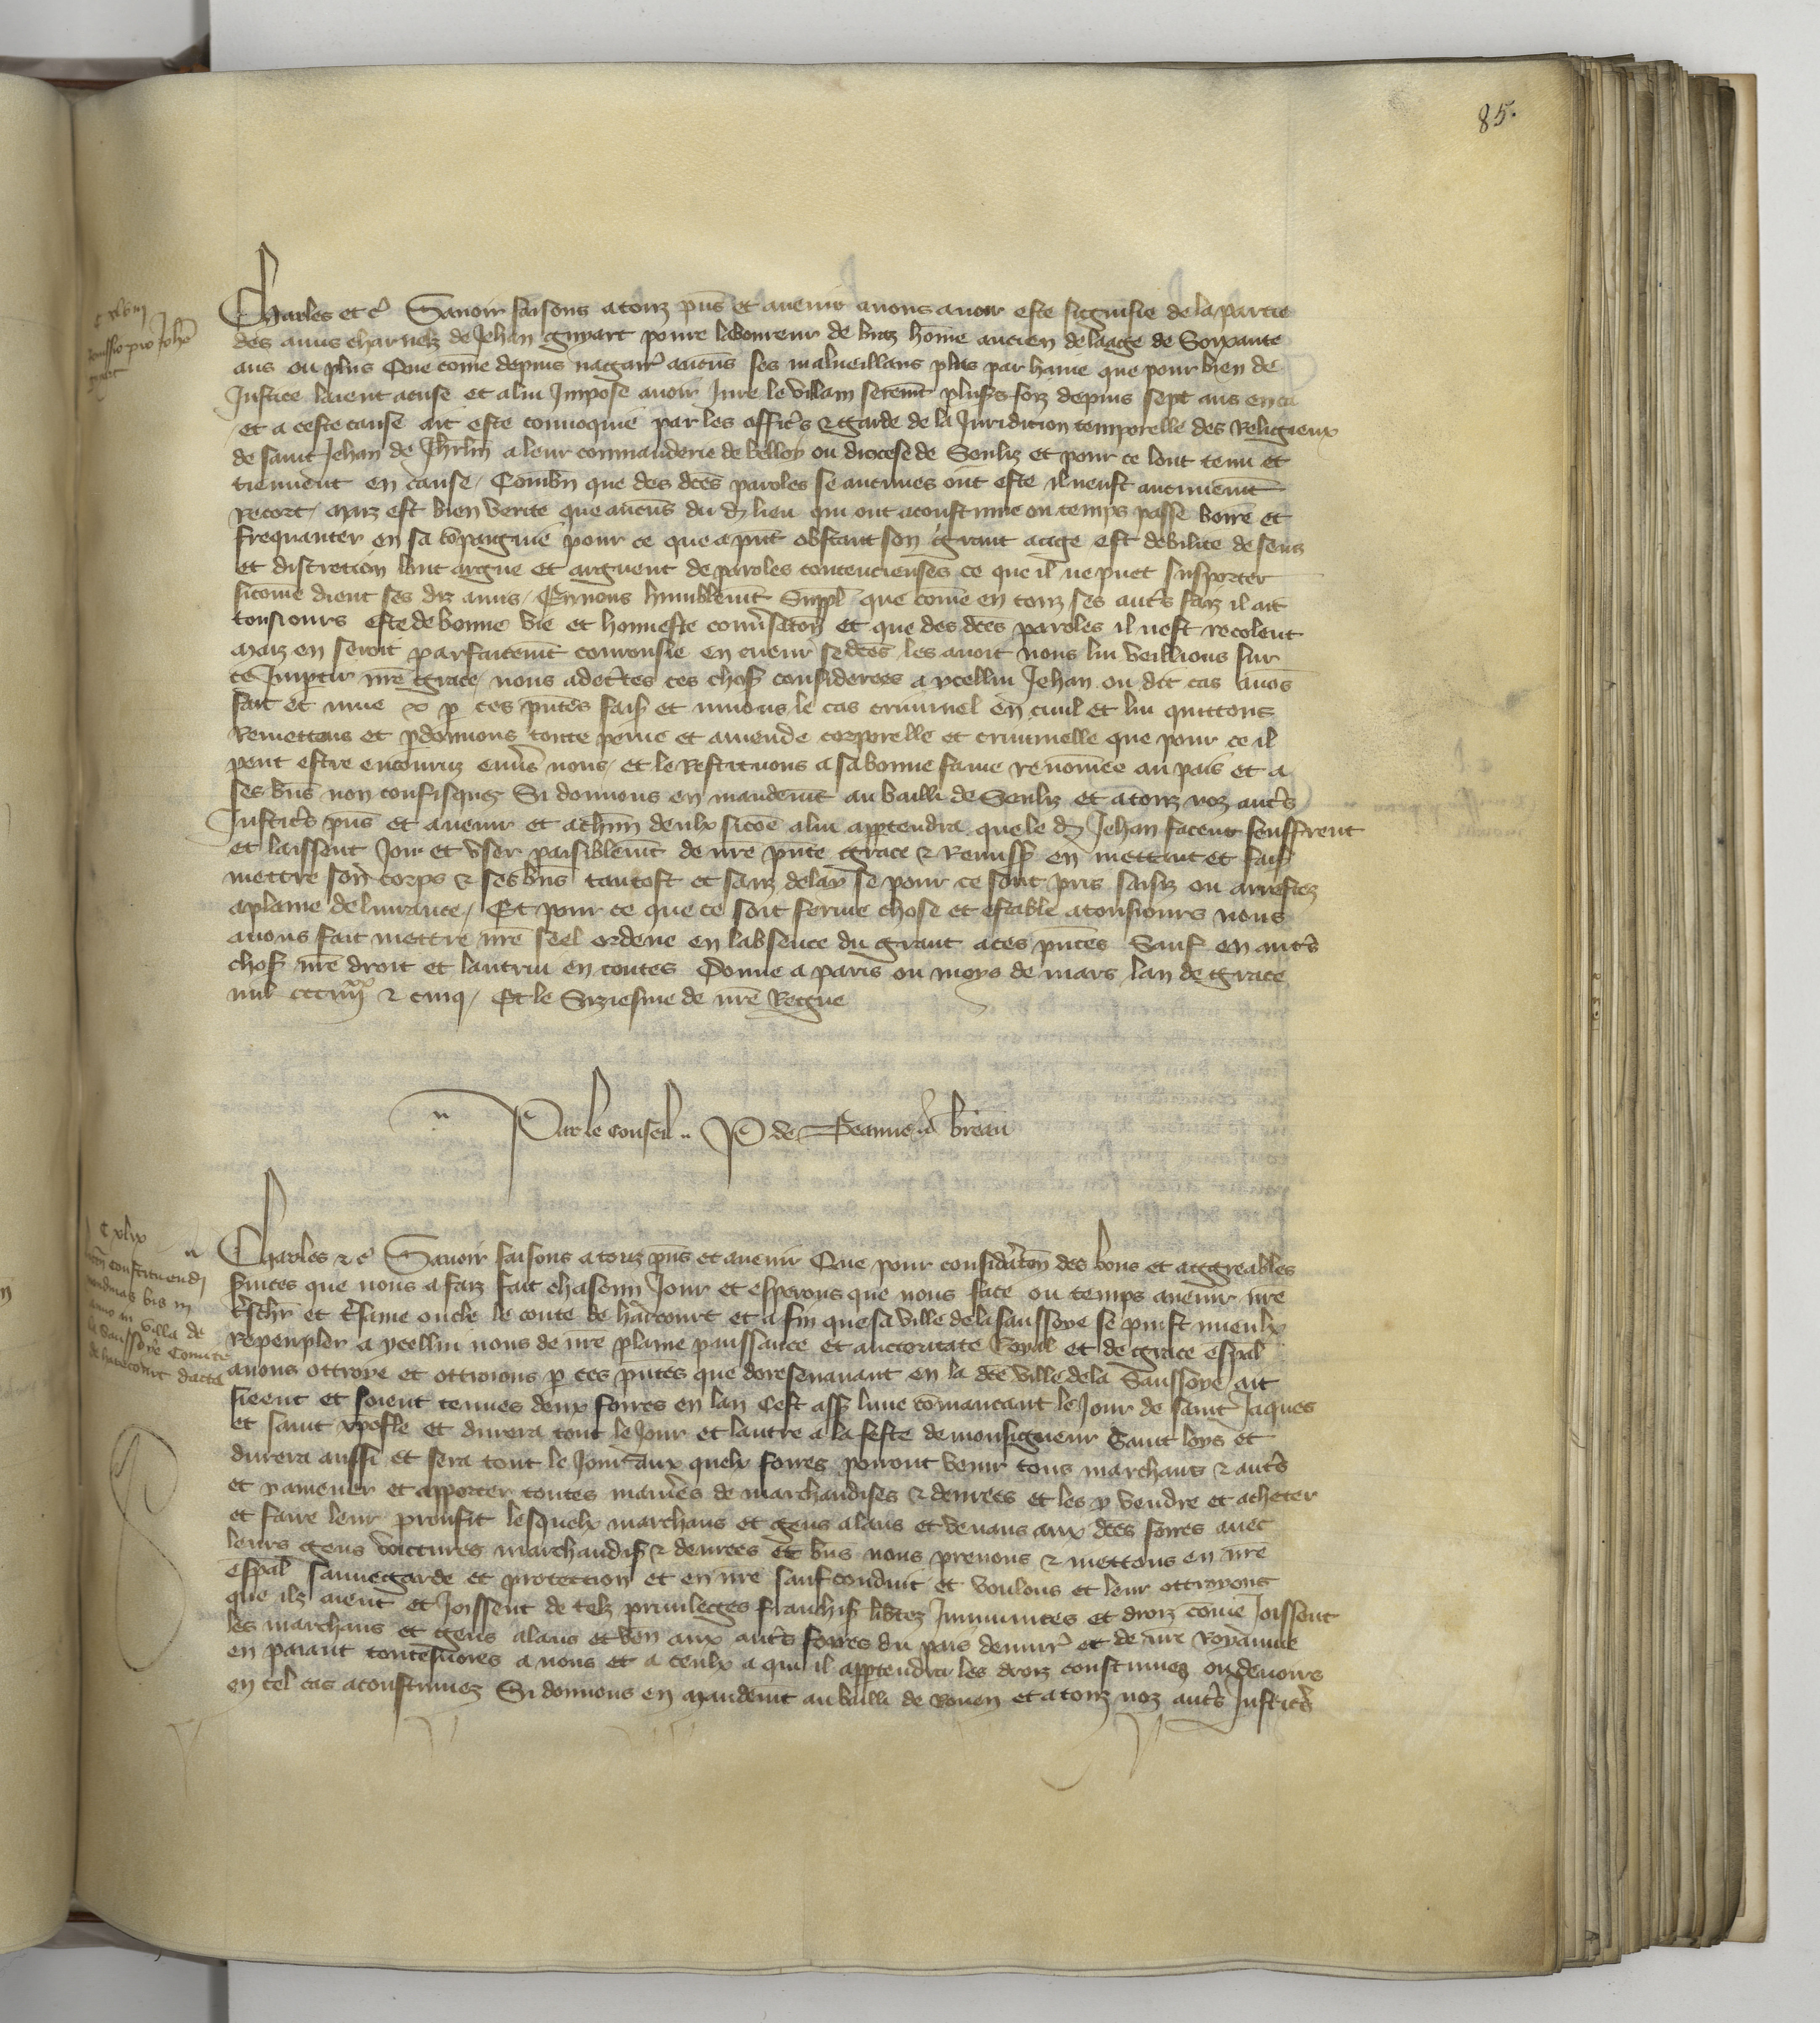 85.
c xlviij
Remissio pro Joh̄e
Charles et c̄ Sauoir faisons a touz p̄ns et auenir auons auoir este signifie de la partie
des amis charnelz de Jehan guyart poure laboureur de braz hōme ancien de laage de Soixante
ans ou plus Que cōme depuis nagair̄ aucūs ses malueillans plus par haine que pour bien de
Justice laient acuse et a lui Impose auoir Jure le villain serem̄t plus̄s foiz depuis sept ans enca
et a ceste cause ait este conuoquie par les offic̄rs & garde de la Juridicion temporelle des Religieux
de saint Jehan de Jhrl̄m a leur commanderie de belloy ou diocese de Senliz et pour ce lont tenu et
tiennent en cause / Combn̄ que des dc̄es paroles se aucunes ont este il neust aucunem̄t
recort / Maiz est bien verite que aucūs du d̄ lieu qui ont acoustume ou temps passe boire et
frequanter en sa cōpaignie pour ce que a pn̄t obstant son grant aage est debilite de sens
et discretion lont argue et arguent de paroles contencieuses ce que il ne puet supporter
sicome dient ses diz amis / Et nous humblem̄t Suppl̄ que cōme en touz ses autr̄s faiz il ait
tousiours este de bonne vie et honneste conu̓saton̄ et que des dc̄es paroles il nest recolent
Maiz en seroit parfaitem̄t courousie en cueur se dc̄es les auoit nous lui veillions sur
ce Impartir n̄re grace / nous adec̄rtes ces chos̄ considerees a ycellui Jehan ou dit cas auōs
fait et mue & p̄ ces pn̄tes fais̄ et muons le cas criminel en ciuil et lui quittons
Remettons et p̄donnons toute peine et amende corporelle et criminelle que pour ce il
peut estre encouruz enu̓s nous / et le Restituons a sa bonne fame renōmee au pais et a
ses bn̄s non confisquez Si donnons en mandem̄t au bailli de Senliz et a touz noz autr̄s
Justic̄rs pn̄s et auenir et a chūn deulx sicōe a lui appartendra que le d̄ Jehan facent seuffrent
et laissent Joir et vser paisiblem̄t de n̄re pn̄te grace & Remiss̄ en mettant et fais̄
mettre son corps & ses bn̄s tantost et sanz delay se pour ce sont pris saisiz ou arrestez
a plaine deliurance / Et pour ce que ce soit ferme chose et estable a tousiours nous
auons fait mettre n̄re seel ordene en labsence du grant a ces pn̄tes Sauf en autr̄s
chos̄ n̄re droit et lautrui en toutes Donne a paris ou moys de mars lan de grace
mil ccc iiijxx & cinq / Et le Siziesme de n̄re Regne
Par le conseil .. P de Beaune .. J brēau
c xlix
constituendi
nundinas bis in
anno in villa de
la saussoye Comiti
de harecourt data
Charles & c̄ Sauoir faisons a touz pn̄s et auenir Que pour considr̄aton̄ des bons et aggreables
s̄uices que nous a faiz fait chascun Jour et esperons que nous face ou temps auenir n̄re
tr̄schr̄ et tr̄same oncle le conte de harcourt et a fin que sa ville de la saussoye se puist mieulx
repeupler a ycellui nous de n̄re plaine puissance et auctorite Royal et de grace esp̄al
auons ottroye et ottroions p̄ ces pn̄tes que doresenauant en la dc̄e ville de la Saussoye ait
sieent et soient tenues deux foires en lan Cest ass̄ lune cōmancant le Jour de saint Jaques
et saint xpofle et durera tout le Jour et lautre a la feste de monsigneur Saint loys et
durera aussi et sera tout le Jour aux quelx foires pouront venir tous marchans & autr̄s
et y amener et apporter toutes manier̄s de marchandises & denrees et les y vendre et acheter
et faire leur proufit lesquelx marchans et gens alans et venans aux dc̄es foires auec
leurs gens voictures marchandis̄ & denrees et bn̄s nous prenons & mettons en n̄re
esp̄al sauuegarde et protection et en n̄re sauf conduit et voulons et leur ottroyons
que ilz aient et Joissent de telz priuileges franchis̄ lib̄tez Immunites et droiz cōme Joissent
les marchans et gens alans et ven̄ aux autr̄s foires du pais denuir̄ et de n̄re Royaume
en paiant toutesuoies a nous et a ceulx a qui il appartendra les droiz coustumes ou deuoirs
en tel cas acoustumez Si donnons en Mandem̄t au bailli de Rouen et a touz noz autr̄s Justic̄rs